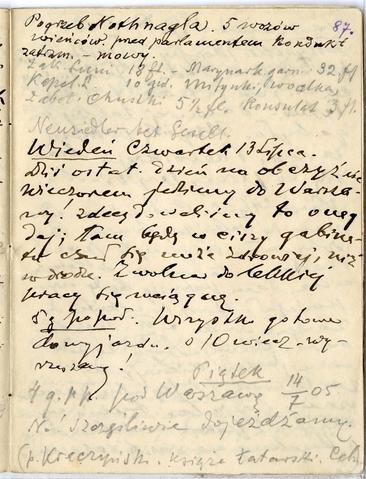 87.
Pogrzeb Nothnagla. 5 wozów
wieńców. przed parlamentem kondukt
zatrzym. - mowy.
18 fl. - Marynark. garn. 32 fl
Kapel. 10 gul.
Żabot. Chustki 5½ fl. Konsulat 3 fl.
Neusiedler
Wiedeń Czwartek 13 Lipca.
Dziś ostat. dzień na obczyźnie
wieczorem jedziemy do Warsza-
wy! zdecydowaliśmy to oneg
daj; tam będę w ciszy gabine-
tu czuł się może zdrowiej, niż
w drodze. Zwolna do lekkiej
pracy się wciągnę.
5 g. popoł. Wszystko gotowe
do wyjazdu. o 10 wiecz. wy-
ruszamy!
Piątek
4 g. pp. pod Warszawą 14/7 05
No! Szczęśliwie dojeżdżamy.
(p. Kraczyński. księże